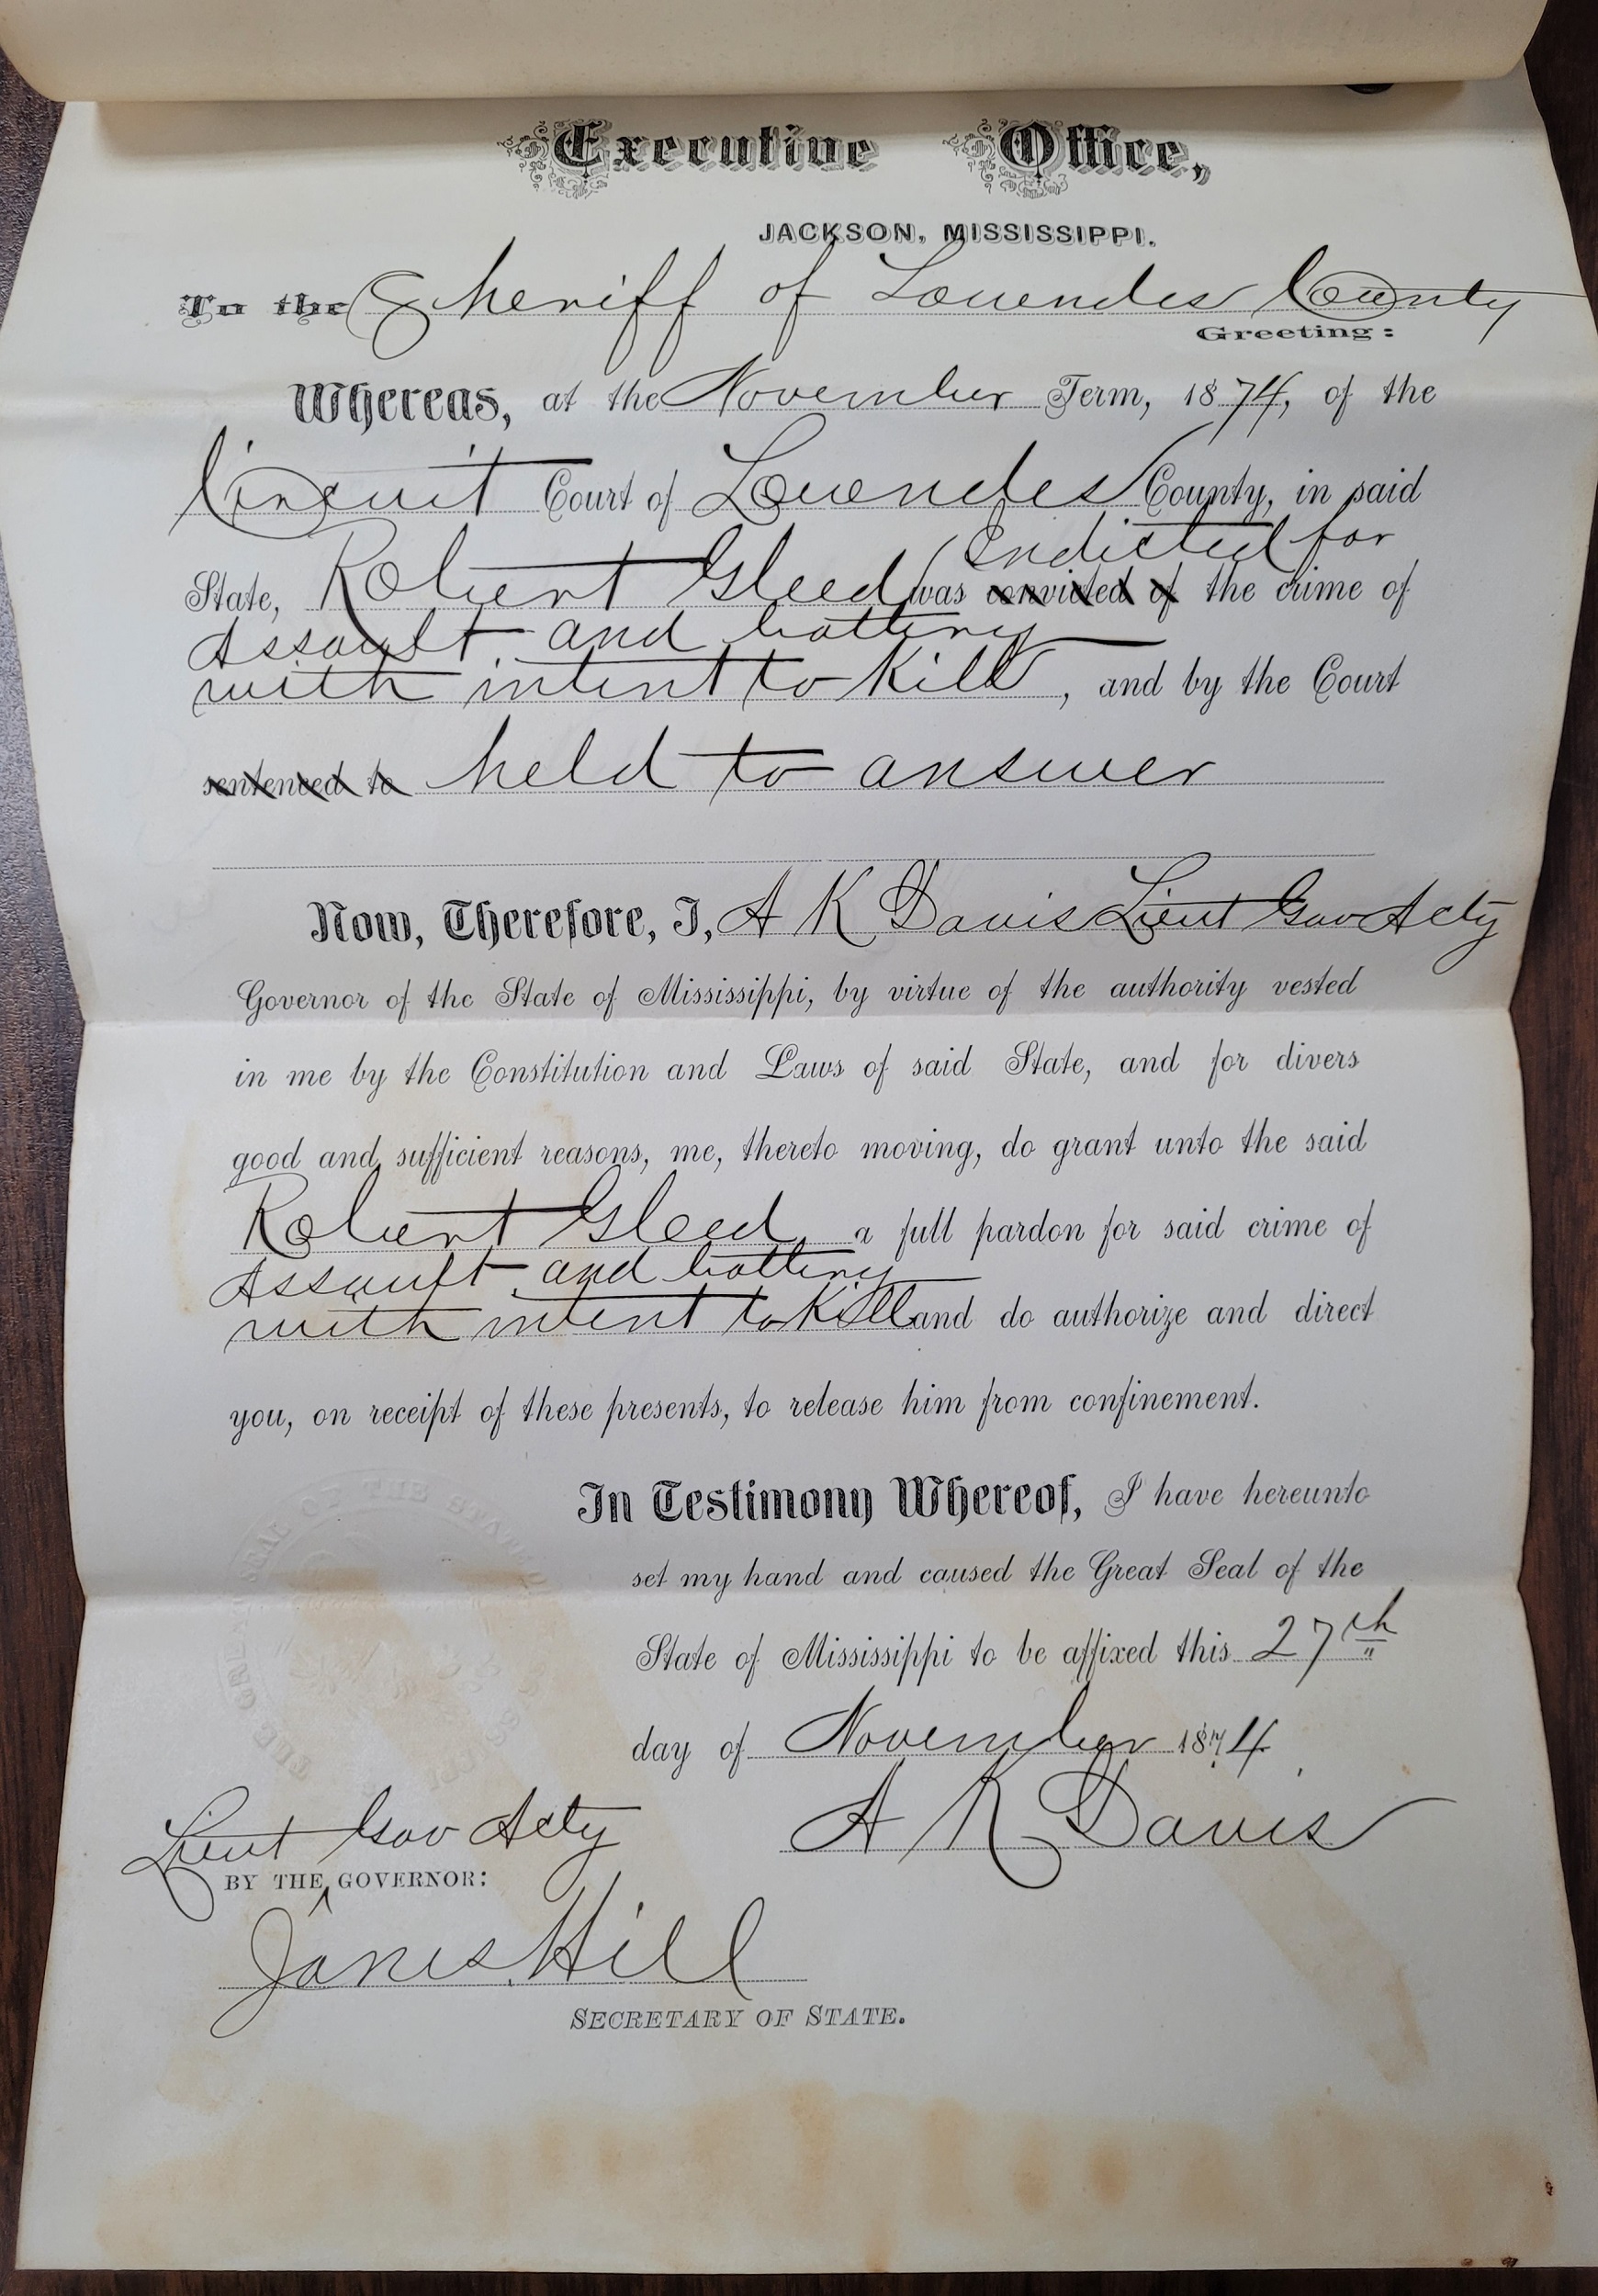 Executive Office,
JACKSON, MISSISSIPPI.
To the Sheriff of Lowndes County
Greeting:
Whereas, at the November Term, 1874, of the
Circuit Court of Lowndes County, in said
Indicted for
State, Robert Gleed was convicted of the crime of
Assault and battery
with intent to Kill, and by the Court
sentenced to held to answer
Now, Therefore, I, A K Davis Lieut Gov Actg
Governor of the State of Mississippi, by virtue of the authority vested
in me by the Constitution and Laws of said State, and for divers
good and sufficient reasons, me, thereto moving, do grant unto the said
Robert Gleed a full pardon for said crime of
Assault and battery
with intent to Kill and do authorize and direct
you, on receipt of these presents, to release him from confinement.
In Testimony Whereof, I have hereunto
set my hand and caused the Great Seal of the
State of Mississippi to be affixed this 27th
day of November 1874
A K Davis
Lieut Gov Actg
BY THE GOVERNOR:
James Hill
SECRETARY OF STATE.
THE GREAT SEAL OF THE STATE